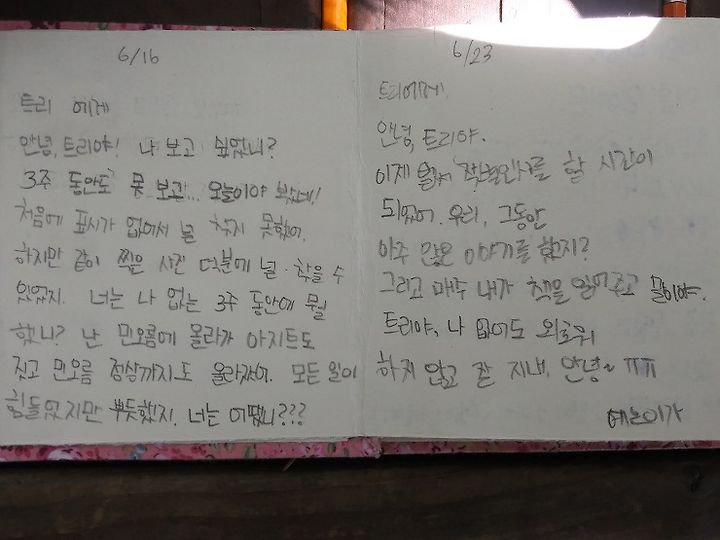 6/16
트리 에게
안녕, 트리야! 나 보고 싶었니?
3주 동안도 못 보고... 오늘이야 봤네!
처음에 표시가 없어서 널 찾지 못했어.
하지만 같이 찍은 사진 덕분에 널 찾을 수
있었지. 너는 나 없는 3주 동안에 뭘
했니? 난 민오름에 올라가 아지트도
짓고 민오름 정상까지도 올라갔어. 모든 일이
힘들었지만 뿌듯했지. 너는 어땠니???
6/23
트리에게
안녕, 트리야.
이제 작별인사를 할 시간이
되었어. 우리, 그동안
아주 많은 이야기를 했지?
그리고 매주 내가 책을 읽어주고 말이야.
트리야, 나 없어도 외로워
하지 않고 잘 지내. 안녕~ ㅠㅠ